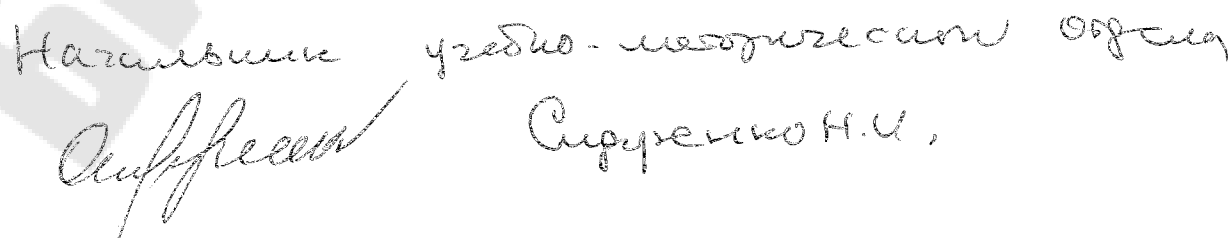 Начальник учебно-методической отдела
Сидуженко Н.И.